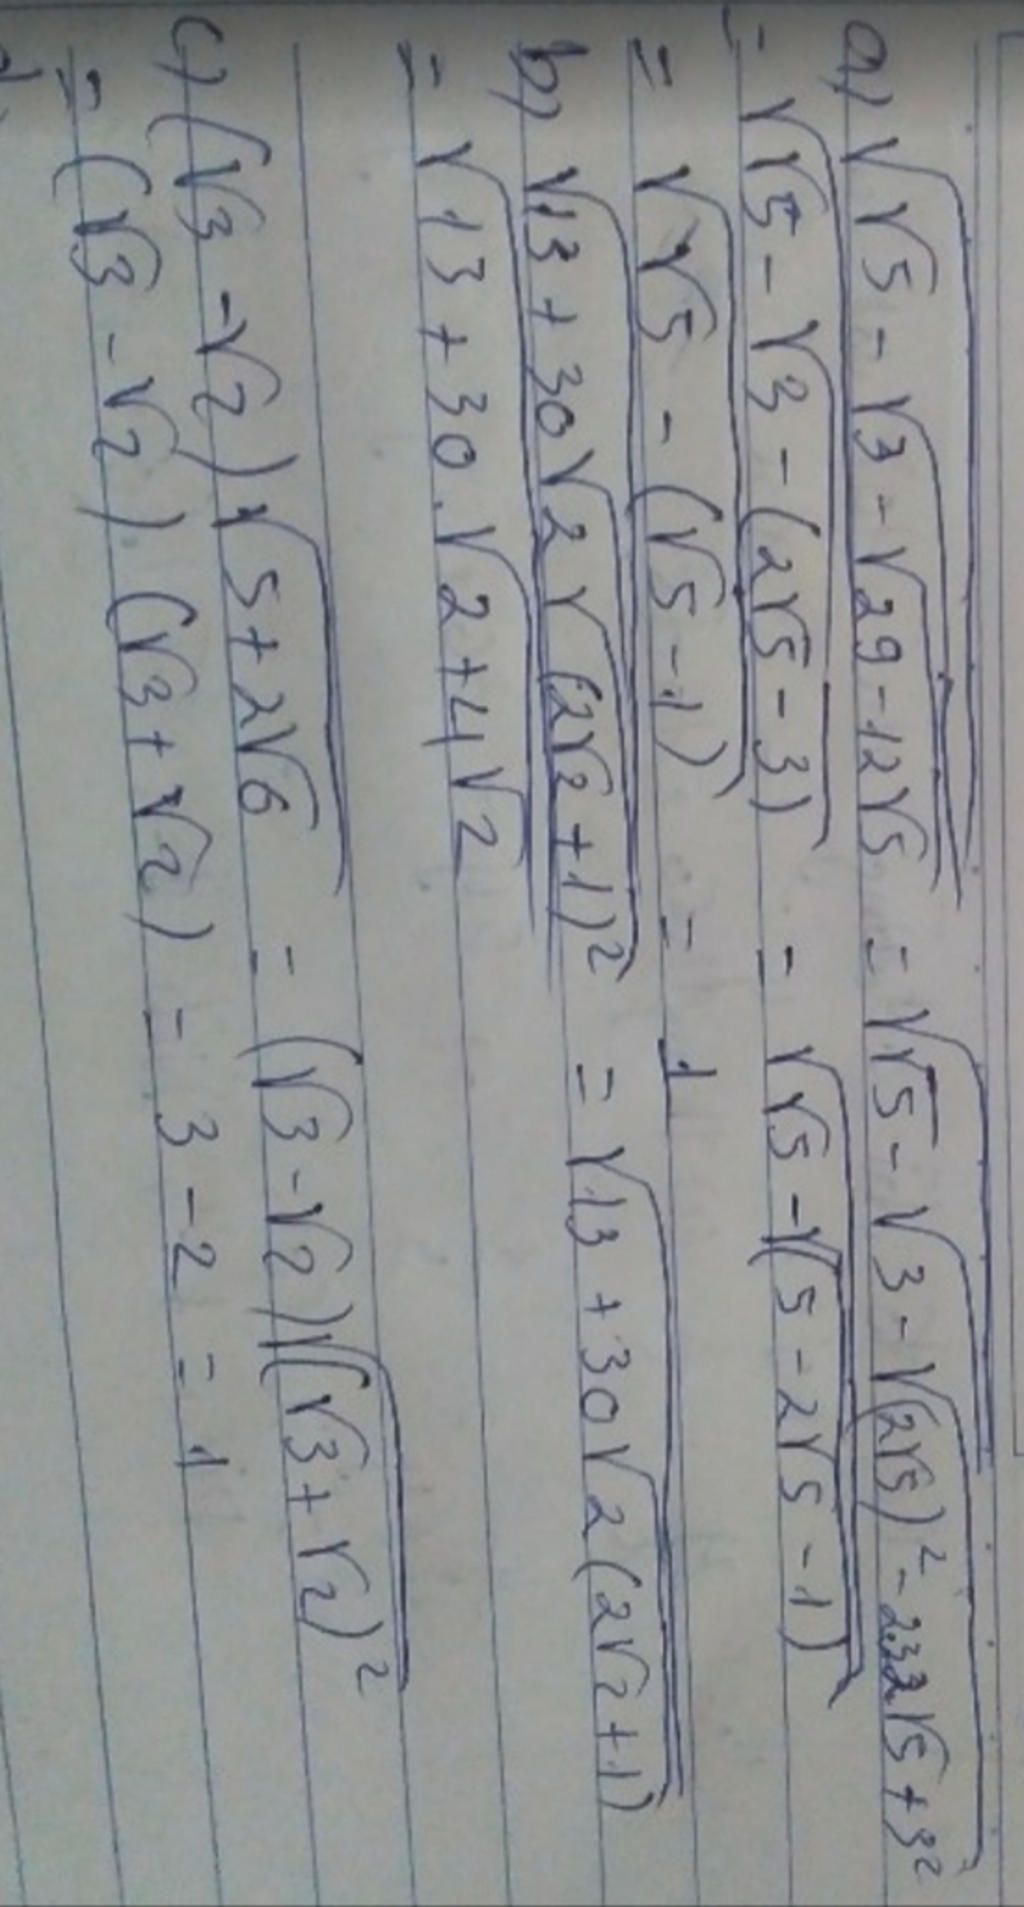 a) √(√5 - √(3 - √(29 - 12√5))) = √(√5 - √(3 - √((2√5)² - 2.3.2√5 + 3²)))
= √(√5 - √(3 - (2√5 - 3))) = √(√5 - √(5 - 2√5 - 1))
= √(√5 - (√5 - 1)) = 1
b) √(13 + 30√(2√((2√2 + 1)²))) = √(13 + 30√(2(2√2 + 1)))
= √(13 + 30.√(2 + 4√2))
c) (√3 - √2)√(5 + 2√6) = (√3 - √2)√((√3 + √2)²)
= (√3 - √2).(√3 + √2) = 3 - 2 = 1